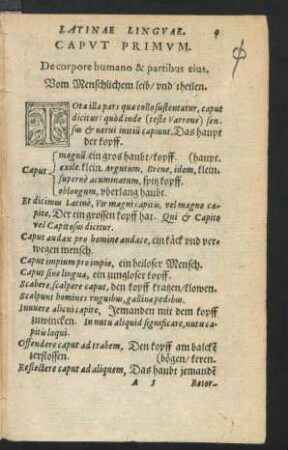 LATINAE LINGVAE.
CAPVT PRIMVM.
De corpore humano & partibus eius,
Vom Menschlichem leib/ vnd theilen.
TOta illa pars quæ collo sustentatur, caput
dicitur: quòd inde (teste Varrone) sen-
sus & nerui initiũ capiunt, Das haupt
der kopff.
magnũ. ein gros haubt/kopff. (haupt.
Caput exile. klein. Argutum, Breue, idem, klein.
supernè acuminatum, spitz kopff.
oblongum, vberlang haubt.
Et dicimus Latinè, Vir magni capitis, vel magno ca-
pite, Der ein grossen kopff hat. Qui & Capito
vel Capitosus dicitur.
Caput audax pro homine audace, ein käck vnd ver-
wegen mensch.
Caput impium pro impio, ein heiloser Mensch.
Caput sine lingua, ein zungloser kopff.
Scabere, scalpere caput, den kopff kratzen/klowen.
Scalpunt homines vnguibus, gallinæ pedibus.
Innuere alicui capite, Jemanden mit dem kopff
zuwincken. In nutu aliquid significare, nutu ca-
pitis loqui.
Offendere caput ad trabem, Den kopff am balckẽ
zerstossen. (bögen/ keren.
Reflectere caput ad aliquem, Das haubt jemandẽ
A 5 Retor-